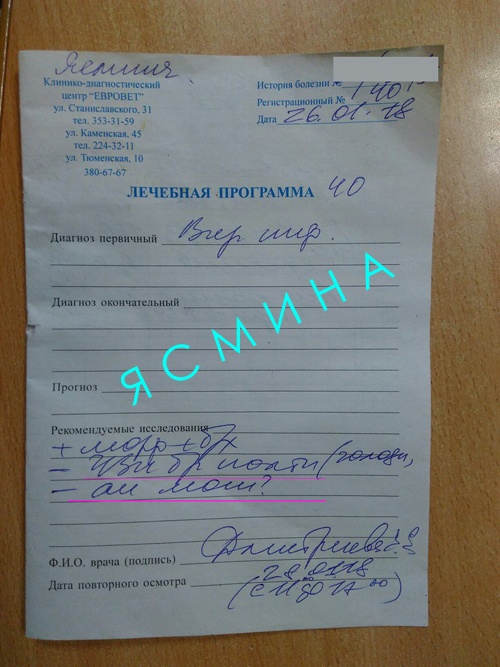 Ясмина
Клинико-диагностический
центр "ЕВРОВЕТ"
ул. Станиславского, 31
тел. 353-31-59
ул. Каменская, 45
тел. 224-32-11
ул. Тюменская, 10
380-67-67
История болезни №
Регистрационный №
Дата 26.01.18
ЛЕЧЕБНАЯ ПРОГРАММА 40
Диагноз первичный Вир инф.
Диагноз окончательный
ЯСМИНА
Прогноз
Рекомендуемые исследования
+ морф + б/х
- УЗИ бр полости (голодн,
- ан мочи?
Ф.И.О. врача (подпись)
Дата повторного осмотра 28.01.18